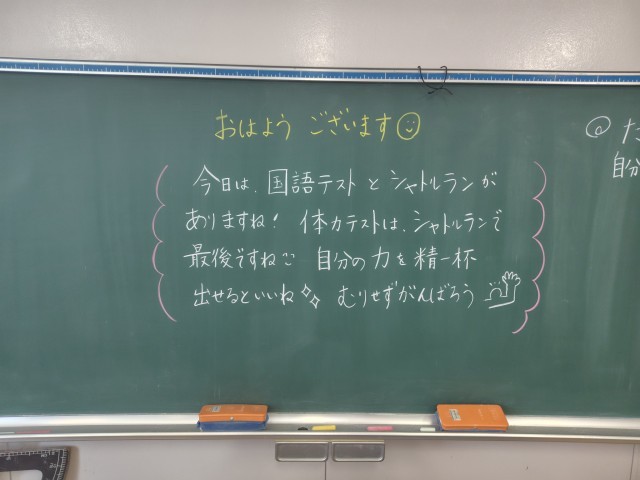 おはよう ございます
今日は、国語テストとシャトルランが
ありますね! 体力テストは、シャトルランで
最後ですね 自分の力を精一杯
出せるといいね むりせずがんばろう
@ た
自分